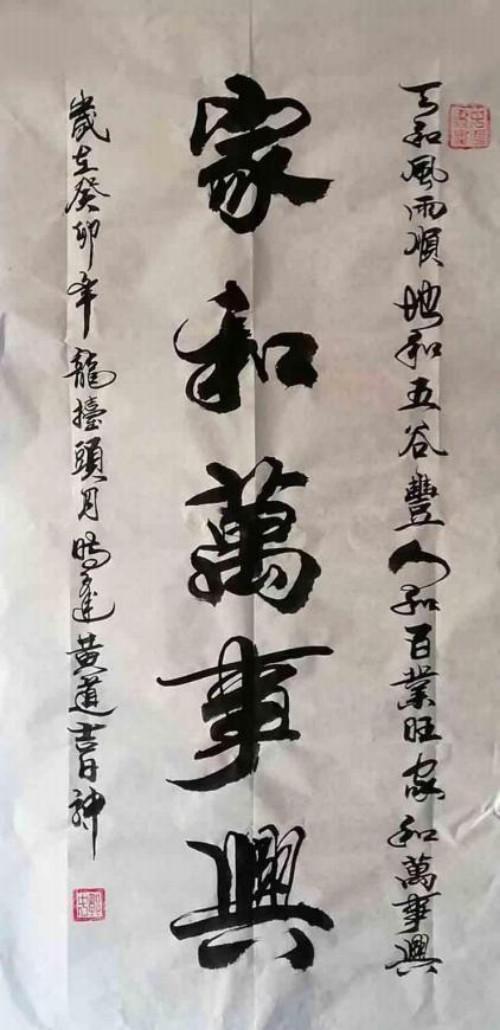 天和風雨順地和五谷豐人和百業旺家和萬事興
家和萬事興
歲在癸卯年龍擡頭月時逢黃道吉日